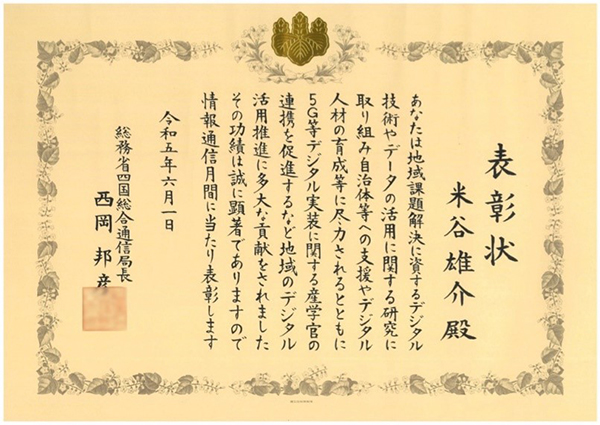 表彰状
米谷雄介 殿
あなたは地域課題解決に資するデジタル
技術やデータの活用に関する研究に
取り組み自治体等への支援やデジタル
人材の育成等に尽力されるとともに
5G等デジタル実装に関する産学官の
連携を促進するなど地域のデジタル
活用推進に多大な貢献をされました
その功績は誠に顕著でありますので
情報通信月間に当たり表彰します
令和五年六月一日
総務省四国総合通信局長
西岡邦彦